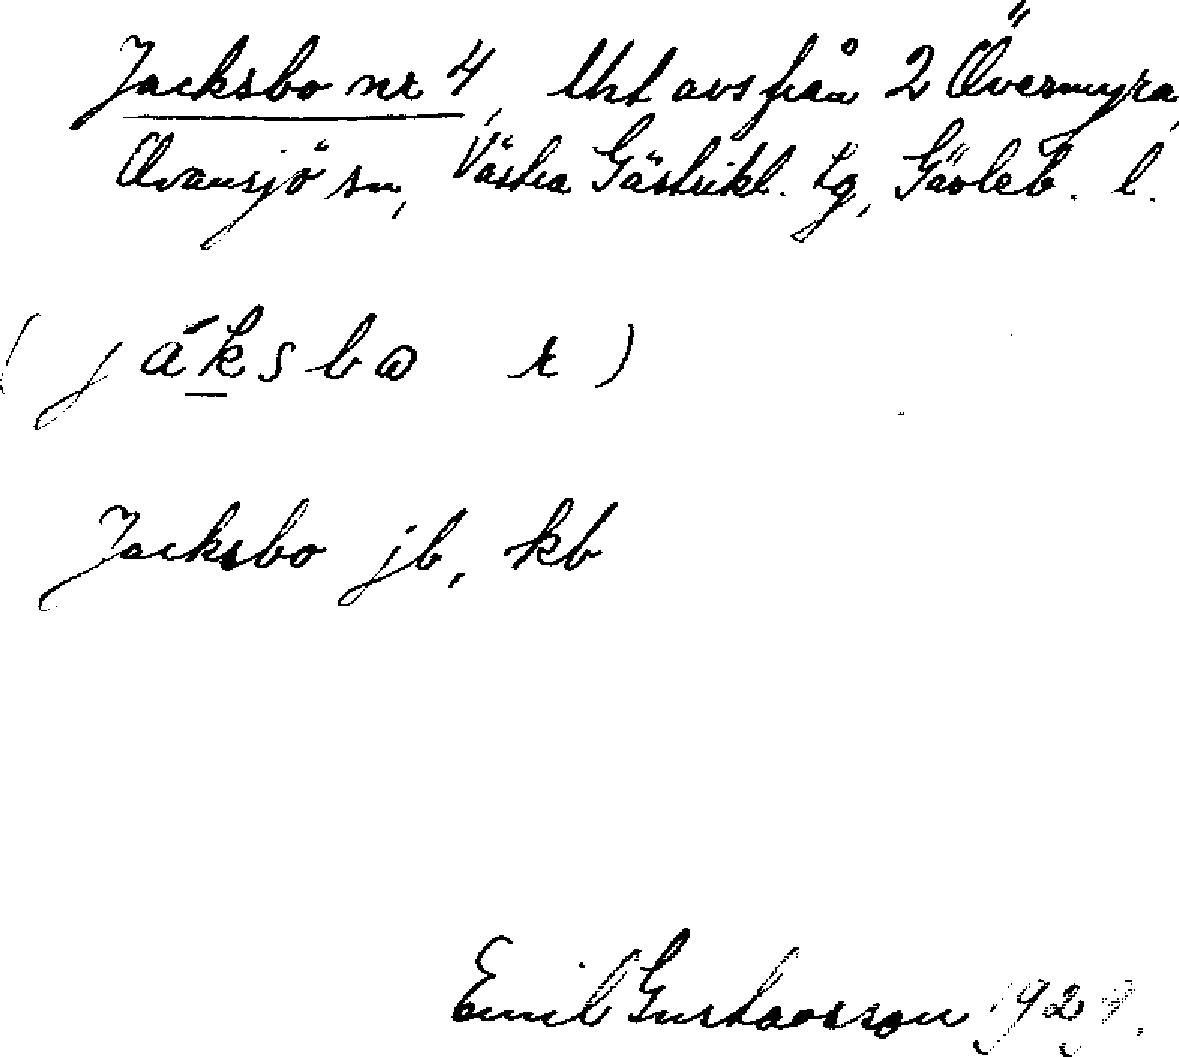 Jacksbo nr 4, 1/4 t avs från 2 Övermyra,
Ovansjö sn, Västra Gästrikl. tg, Gävleb. l.
(jáksbɷ r)
Jacksbo jb, kb
Emil Gustavsson 1929.